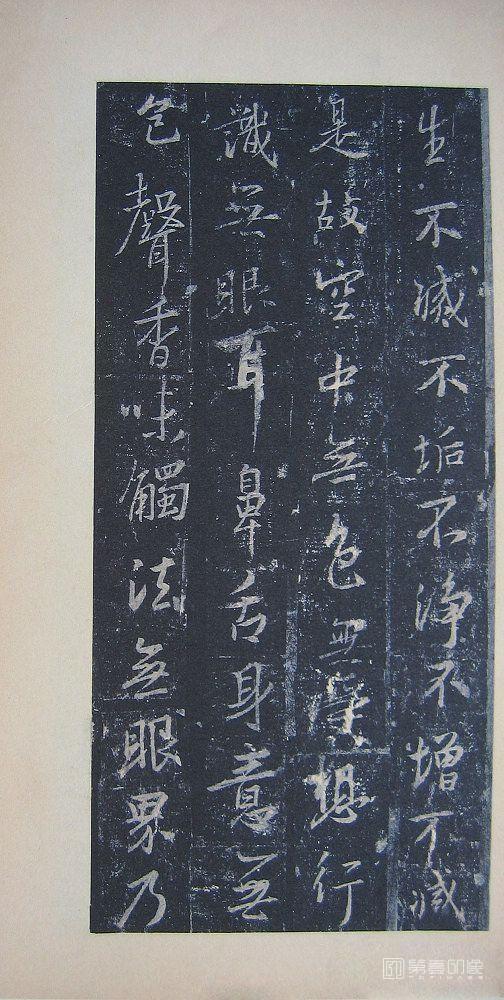 生不滅不垢不淨不增不減
是故空中無色無受想行
識無眼耳鼻舌身意無
色聲香味觸法無眼界乃